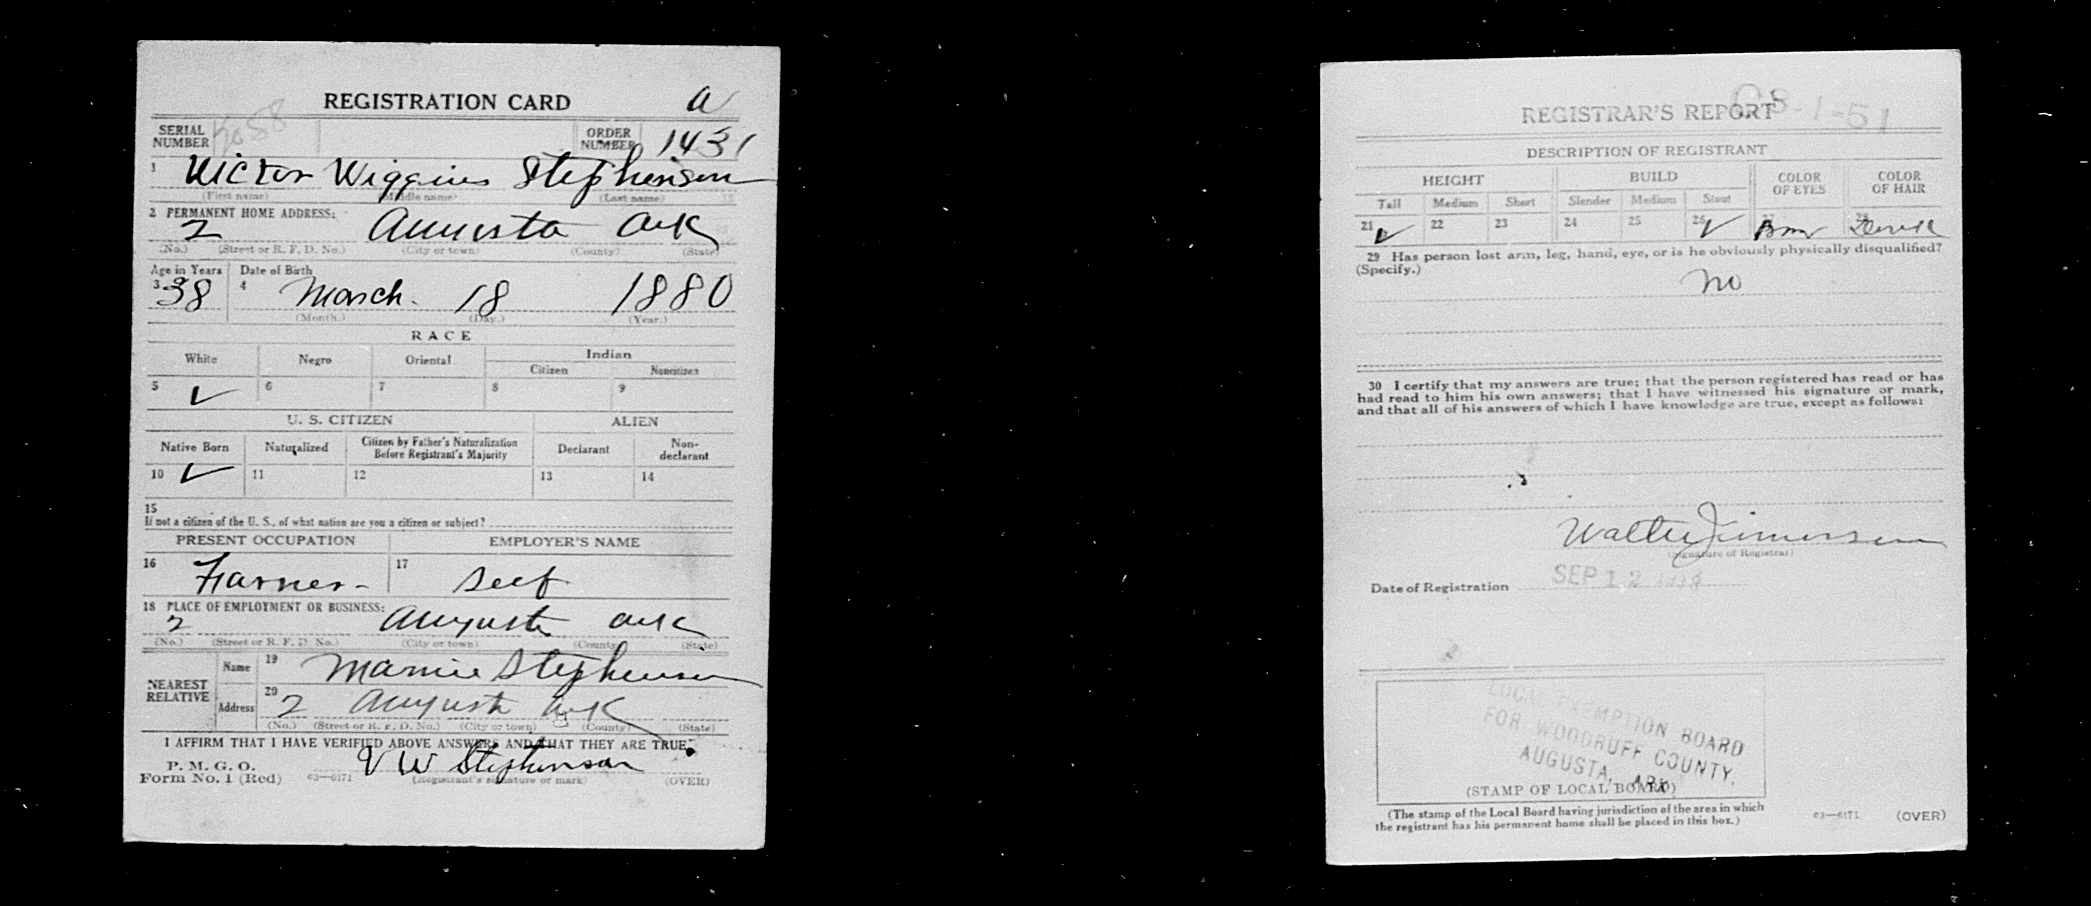 REGISTRATION CARD a
SERIAL NUMBER ORDER NUMBER 1431
1 Victor Wiggins Stephenson
(First name) (Middle name) (Last name)
2 PERMANENT HOME ADDRESS:
2 Augusta Ark
(No.) (Street or R. F. D. No.) (City or town) (County) (State)
Age in Years Date of Birth
3 38 4 March. 18 1880
(Month.) (Day.) (Year.)
RACE
White Negro Oriental Indian
Citizen Noncitizen
5 ✓ 6 7 8 9
U. S. CITIZEN ALIEN
Native Born Naturalized Citizen by Father's Naturalization Before Registrant's Majority Declarant Non-declarant
10 ✓ 11 12 13 14
15
If not a citizen of the U. S., of what nation are you a citizen or subject?
PRESENT OCCUPATION EMPLOYER'S NAME
16 Farmer - 17 Self
18 PLACE OF EMPLOYMENT OR BUSINESS:
2 Augusta Ark
(No.) (Street or R. F. D. No.) (City or town) (County) (State)
NEAREST RELATIVE Name 19 Mamie Stephenson
Address 20 2 Augusta Ark
(No.) (Street or R. F. D. No.) (City or town) (County) (State)
I AFFIRM THAT I HAVE VERIFIED ABOVE ANSWERS AND THAT THEY ARE TRUE.
P. M. G. O.
Form No. 1 (Red) 03—6171 V W Stephenson
(Registrant's signature or mark) (OVER)
REGISTRAR'S REPORT
DESCRIPTION OF REGISTRANT
HEIGHT BUILD COLOR OF EYES COLOR OF HAIR
Tall Medium Short Slender Medium Stout
21 ✓ 22 23 24 25 26 ✓ 27 Brn 28
29 Has person lost arm, leg, hand, eye, or is he obviously physically disqualified?
(Specify.)
No
30 I certify that my answers are true; that the person registered has read or has
had read to him his own answers; that I have witnessed his signature or mark,
and that all of his answers of which I have knowledge are true, except as follows:
Walter Jimerson
(Signature of Registrar)
Date of Registration SEP 12 1918
LOCAL EXEMPTION BOARD
FOR WOODRUFF COUNTY,
AUGUSTA, ARK
(STAMP OF LOCAL BOARD)
(The stamp of the Local Board having jurisdiction of the area in which
the registrant has his permanent home shall be placed in this box.)
03—6171 (OVER)